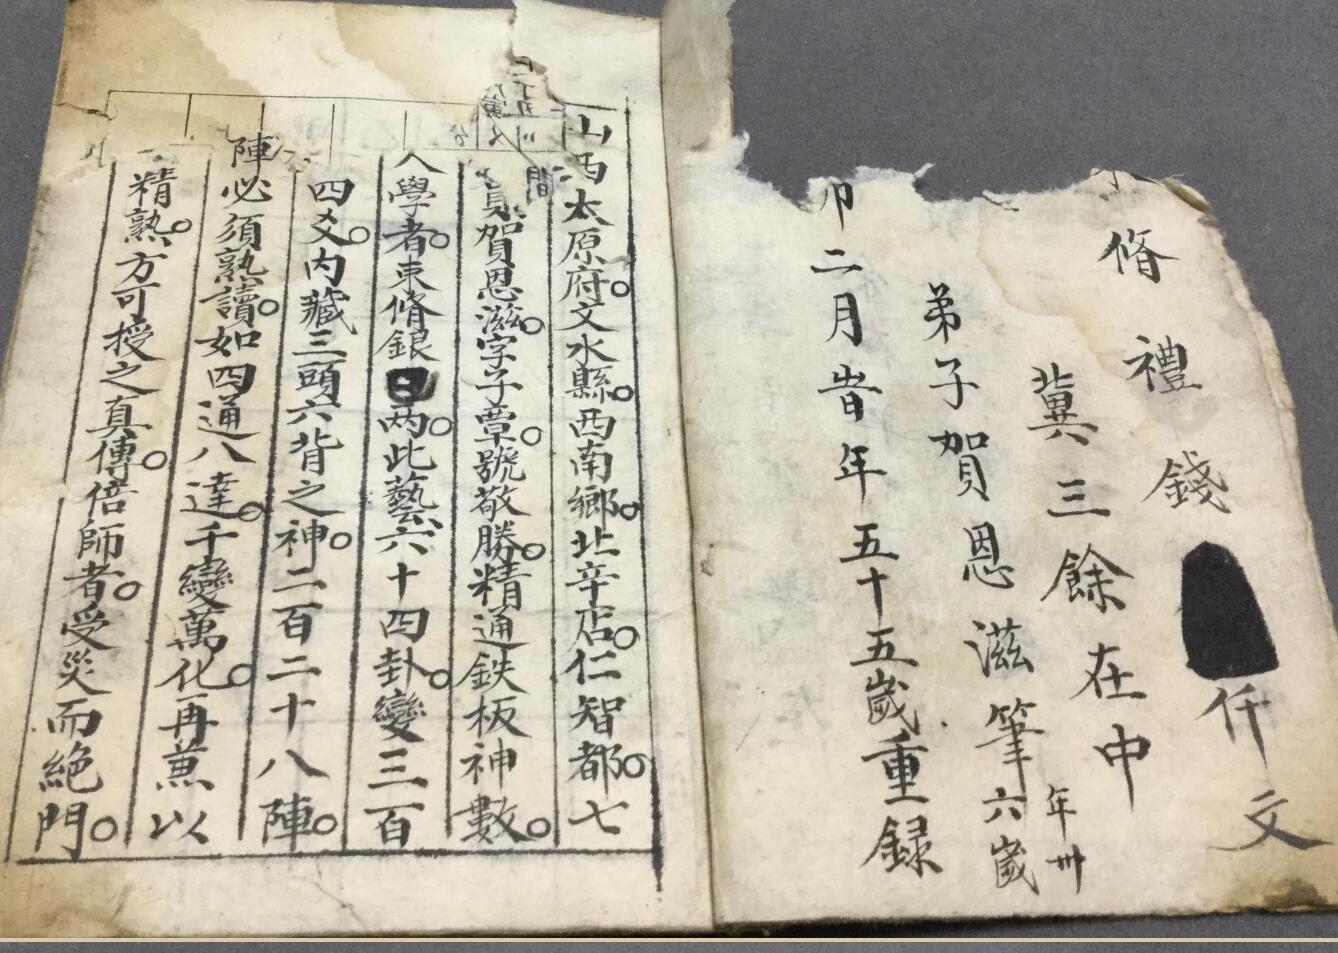 脩禮錢仟文
冀三餘在中
弟子賀恩滋筆年卅六歲
卯二月昔年五十五歲重録
山西太原府文水縣西南鄉北辛店仁智都七
賀恩滋字子章號敬勝精通鉄板神數
入學者束脩銀兩此藝六十四卦變三百
四爻内藏三頭六背之神二百二十八陣
陣必須熟讀如四通八達千變萬化再兼以
精熟方可授之真傳倍師者受災而絶門